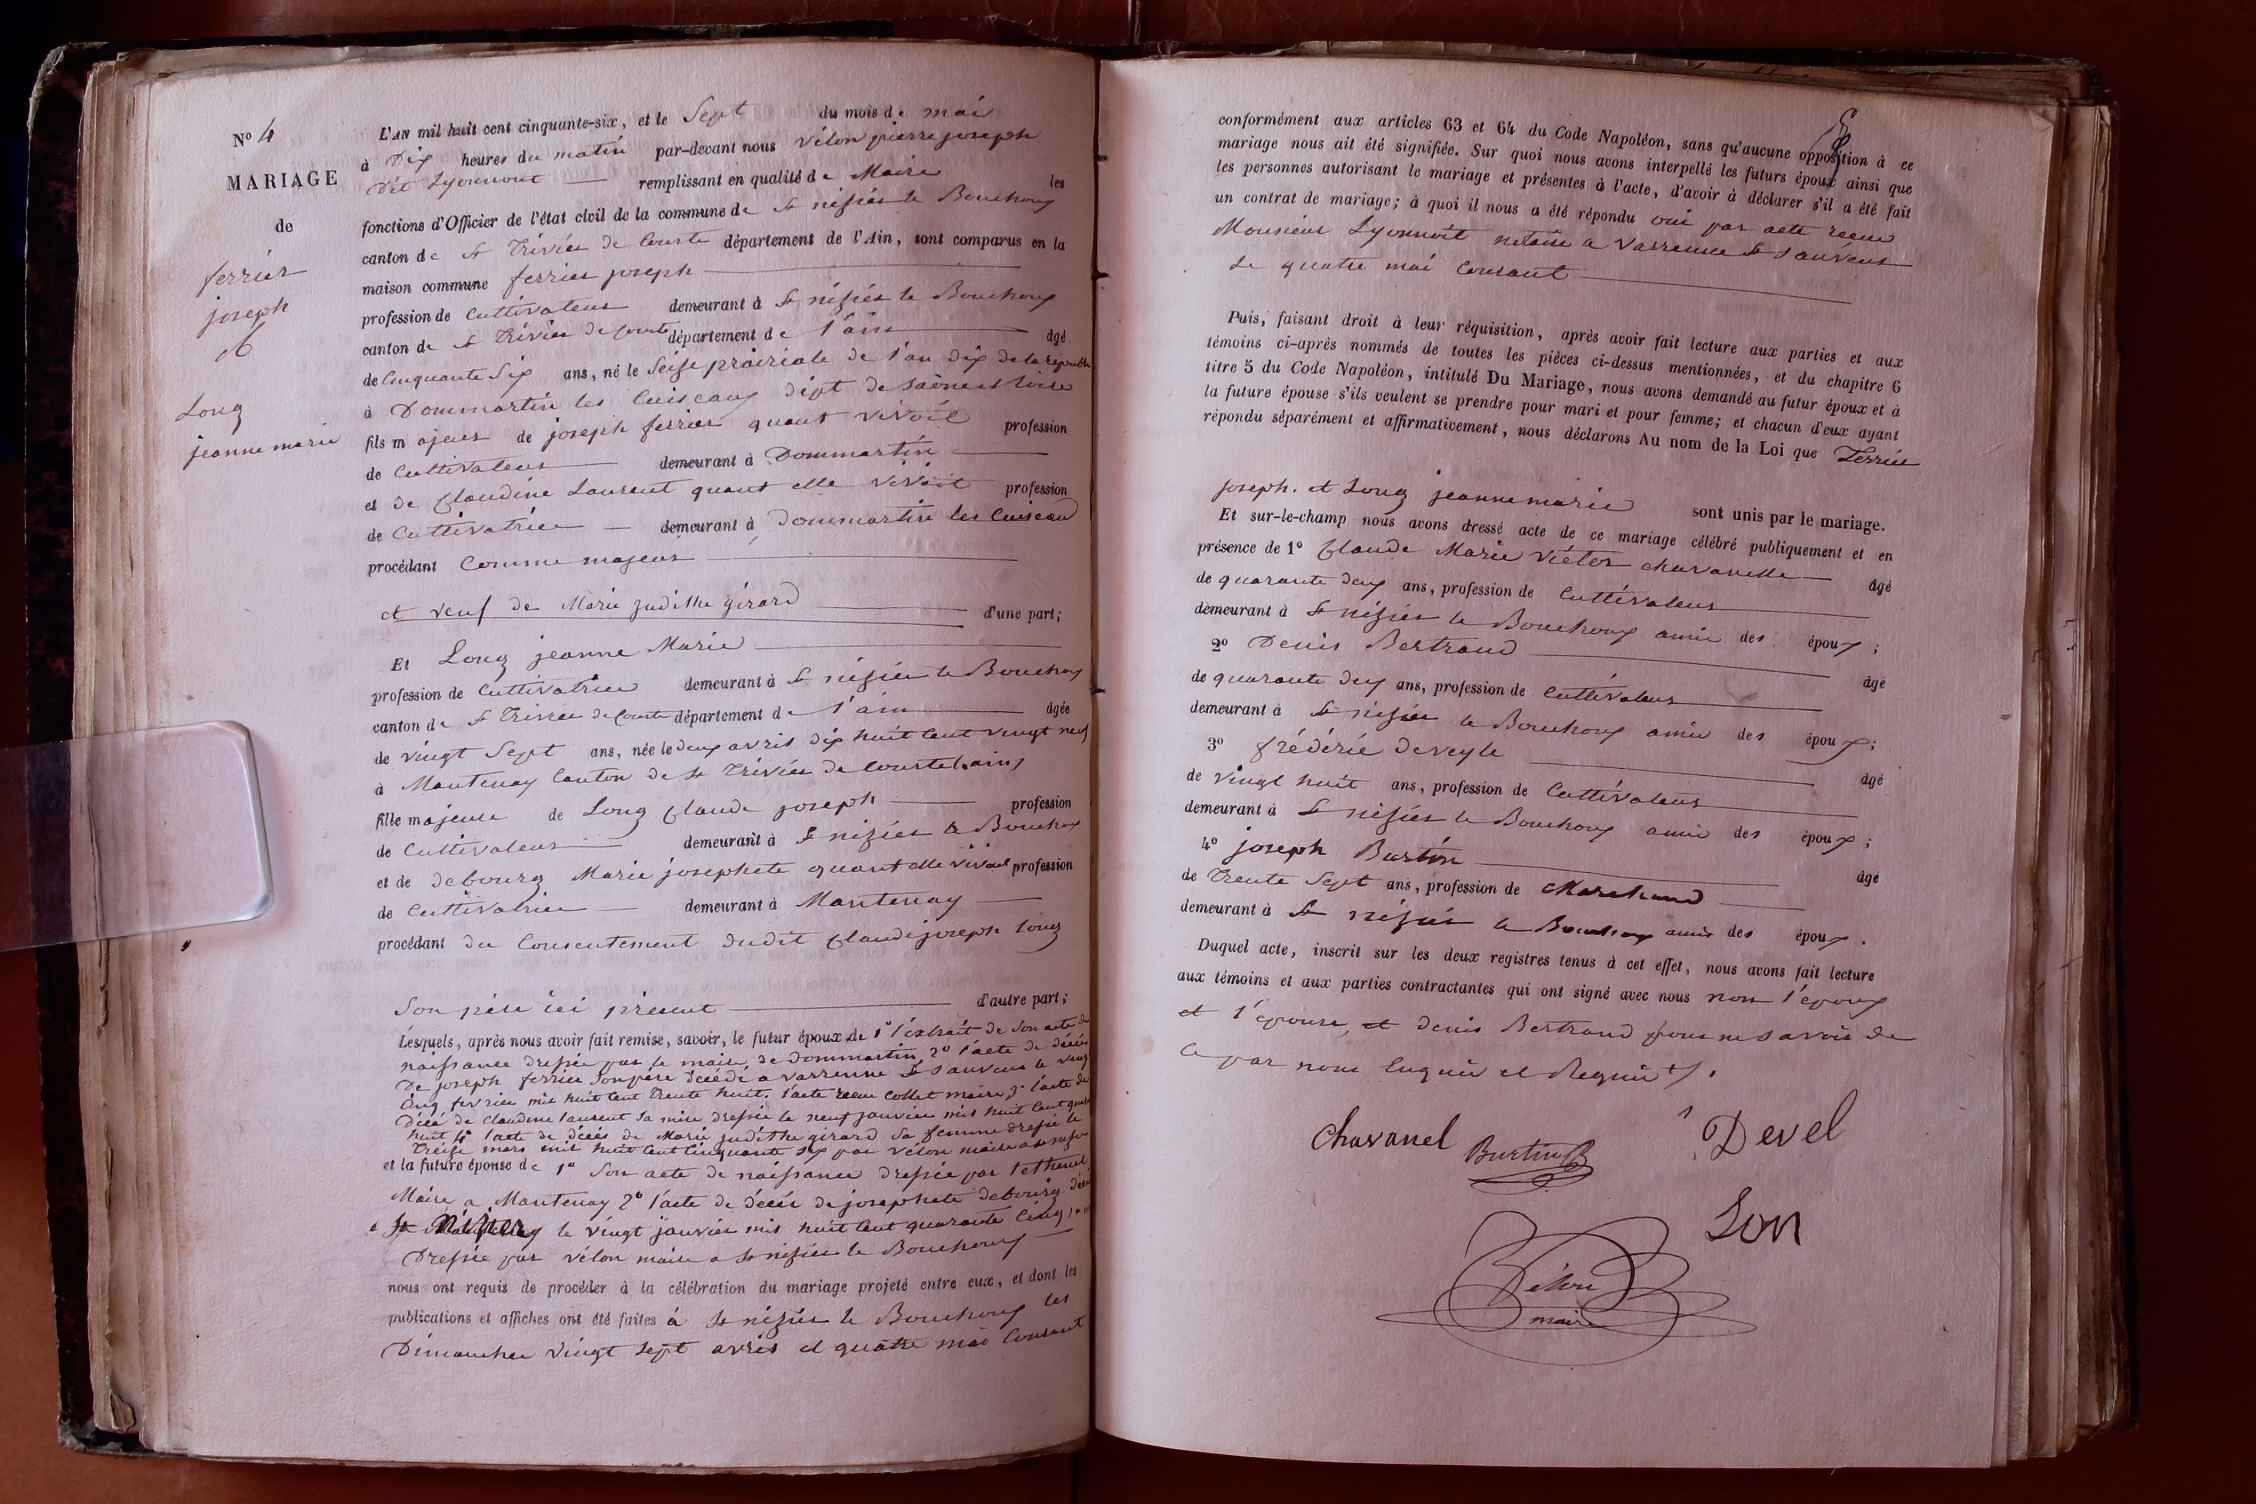 No 4
MARIAGE
de
ferrier
joseph
et
Long
jeanne marie
L'AN mil huit cent cinquante-six, et le Sept du mois de mai
à Dix heures du matin par-devant nous Vélon pierre joseph
Dit Lyonnont remplissant en qualité de Maire les
fonctions d'Officier de l'état civil de la commune de St nizier le Bouchoux
canton de St Trivier de Courte département de l'Ain, sont comparus en la
maison commune ferrier joseph
profession de Cultivateur demeurant à St nizier le Bouchoux
canton de St Trivier de Courte département de l'ain âgé
de Cinquante Six ans, né le Seize prairiale de l'an dix de la republi
à Dommartin les Cuiseaux dépt de Saône et Loire
fils majeur de joseph ferrier quant vivoit profession
de Cultivateur demeurant à Dommartin
et de Claudine Laurent quant elle vivoit profession
de Cultivatrice demeurant à Dommartin les Cuiseau
procédant Comme majeur
et veuf de Marie judithe girard d'une part;
Et Long jeanne Marie
profession de Cultivatrice demeurant à St nizier le Bouchoux
canton de St Trivier de Courte département de l'ain âgée
de vingt Sept ans, née le deux avril dix huit Cent vingt neuf
à Mantenay Canton de St Trivier de Courte (ain)
fille majeure de Long Claude joseph profession
de Cultivateur demeurant à St nizier le Bouchoux
et de debourg Marie josephete quant elle vivoit profession
de Cultivatrice demeurant à Mantenay
procédant du Consentement dudit Claude joseph Long
Son père ici présent d'autre part;
Lesquels, après nous avoir fait remise, savoir, le futur époux de 1o l'extrait de Son acte de
naissance dressée par le maire de Dommartin 2o l'acte de décès
De joseph ferrier Son père décédé a varrenne St Sauveur le vingt
Cinq fevrier mil huit Cent Trente huit. l'acte recu Collet maire 3o l'acte de
Décé de Claudine laurent Sa mère dressée le neuf janvier mil huit Cent quarante
huit 4o l'acte de décès de Marie judithe girard Sa femme dressée le
Treize mars mil huit Cent Cinquante Six par vélon maire a St nizier
et la future épouse de 1o Son acte de naissance dressée par
Maire a Mantenay 2o l'acte de décés de josephete debourg
a St nizier le vingt janvier mil huit Cent quarante Cinq
Dressée par vélon maire a St nizier le Bouchoux
nous ont requis de procéder à la célébration du mariage projeté entre eux, et dont les
publications et affiches ont été faites à St nizier le Bouchoux les
Dimanches vingt Sept avril et quatre mai Courant
conformément aux articles 63 et 64 du Code Napoléon, sans qu'aucune opposition à ce
mariage nous ait été signifiée. Sur quoi nous avons interpellé les futurs époux ainsi que
les personnes autorisant le mariage et présentes à l'acte, d'avoir à déclarer s'il a été fait
un contrat de mariage; à quoi il nous a été répondu oui par acte recue
Monsieur Lyonnoit notaire a Varrenne St Sauveur
Le quatre mai Courant
Puis, faisant droit à leur réquisition, après avoir fait lecture aux parties et aux
témoins ci-après nommés de toutes les pièces ci-dessus mentionnées, et du chapitre 6
titre 5 du Code Napoléon, intitulé Du Mariage, nous avons demandé au futur époux et à
la future épouse s'ils veulent se prendre pour mari et pour femme; et chacun d'eux ayant
répondu séparément et affirmativement, nous déclarons Au nom de la Loi que Ferrier
joseph. et Long jeanne marie sont unis par le mariage.
Et sur-le-champ nous avons dressé acte de ce mariage célébré publiquement et en
présence de 1o Claude Marie Victor chavanelle âgé
de quarante deux ans, profession de Cultivateur
demeurant à St nizier le Bouchoux amie des époux;
2o Denis Bertrand âgé
de quarante deux ans, profession de Cultivateur
demeurant à St nizier le Bouchoux amie des époux;
3o frédéric deveyle âgé
de vingt huit ans, profession de Cultivateur
demeurant à St nizier le Bouchoux amie des époux;
4o joseph Burtin âgé
de Trente Sept ans, profession de Marchand
demeurant à St nizier le Bouchoux amie des époux.
Duquel acte, inscrit sur les deux registres tenus à cet effet, nous avons fait lecture
aux témoins et aux parties contractantes qui ont signé avec nous non l'époux
et l'épouse, et denis Bertrand pour ne savoir de
Ce par nous Enquis et Requis
Chavanel
Burtin
Devel
Lon
Vélon
maire